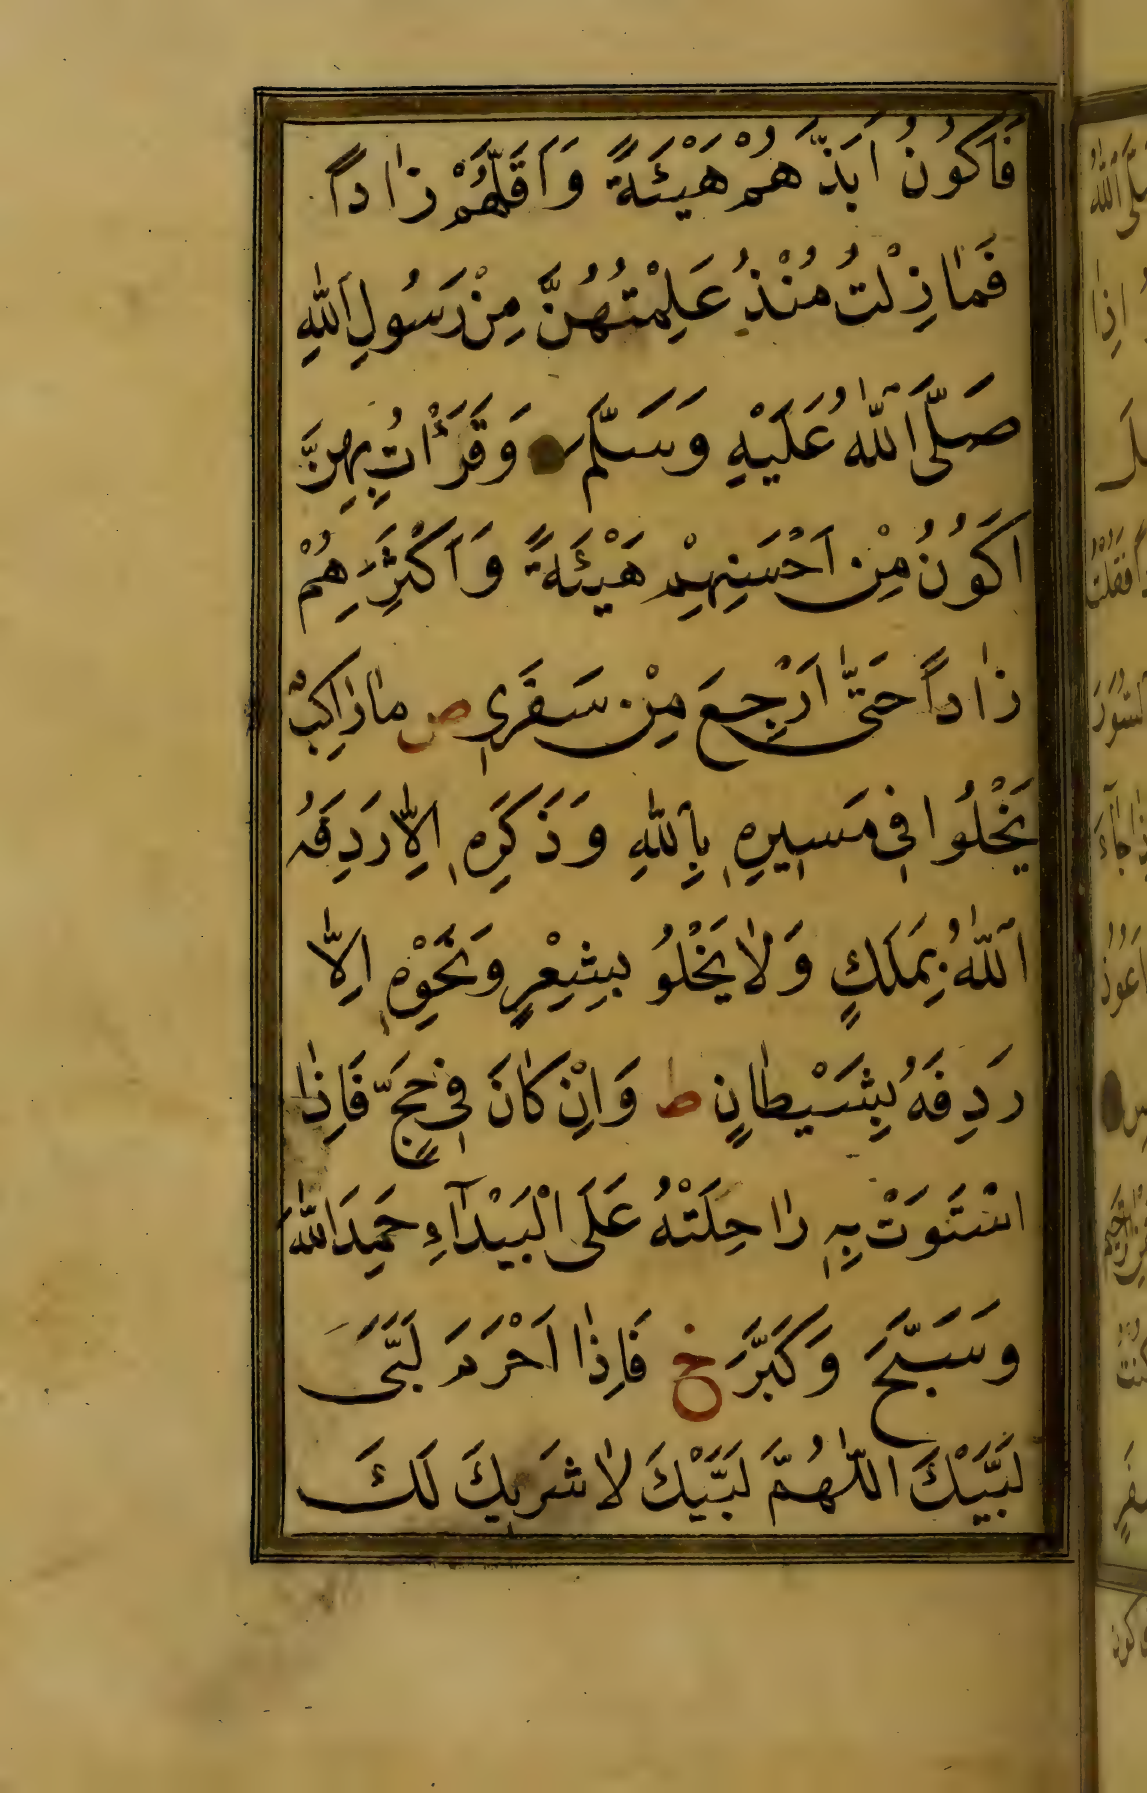 فَاَكُونُ اَبَذَّهُمْ هَيْئَةً وَاَقَلَّهُمْ زَاداً
فَمَا زِلْتُ مُنْذُ عَلِمْتُهُنَّ مِنْ رَسُولِ اللّٰهِ
صَلَّى اللّٰهُ عَلَيْهِ وَسَلَّمَ وَقَرَأْتُ بِهِنَّ
اَكُونُ مِنْ اَحْسَنِهِمْ هَيْئَةً وَاَكْثَرِهِمْ
زَاداً حَتّٰى اَرْجِعَ مِنْ سَفَرِي ص مَا رَاكِبٌ
يَخْلُوا فِي مَسِيرِهِ بِاللّٰهِ وَذَكَرَهِ اِلَّا رَدِفَهُ
اللّٰهُ بِمَلَكٍ وَلَا يَخْلُوُ بِشِعْرٍ وَنَحْوِهِ اِلَّا
رَدِفَهُ بِشَيْطَانٍ ط وَاِنْ كَانَ فِي حَجٍّ فَاِذَا
اسْتَوَتْ بِهِ رَاحِلَتُهُ عَلَى الْبَيْدَاءِ حَمِدَ اللّٰهَ
وَسَبَّحَ وَكَبَّرَ خ فَاِذَا اَحْرَمَ لَبَّى
لَبَّيْكَ اللّٰهُمَّ لَبَّيْكَ لَا شَرِيكَ لَكَ